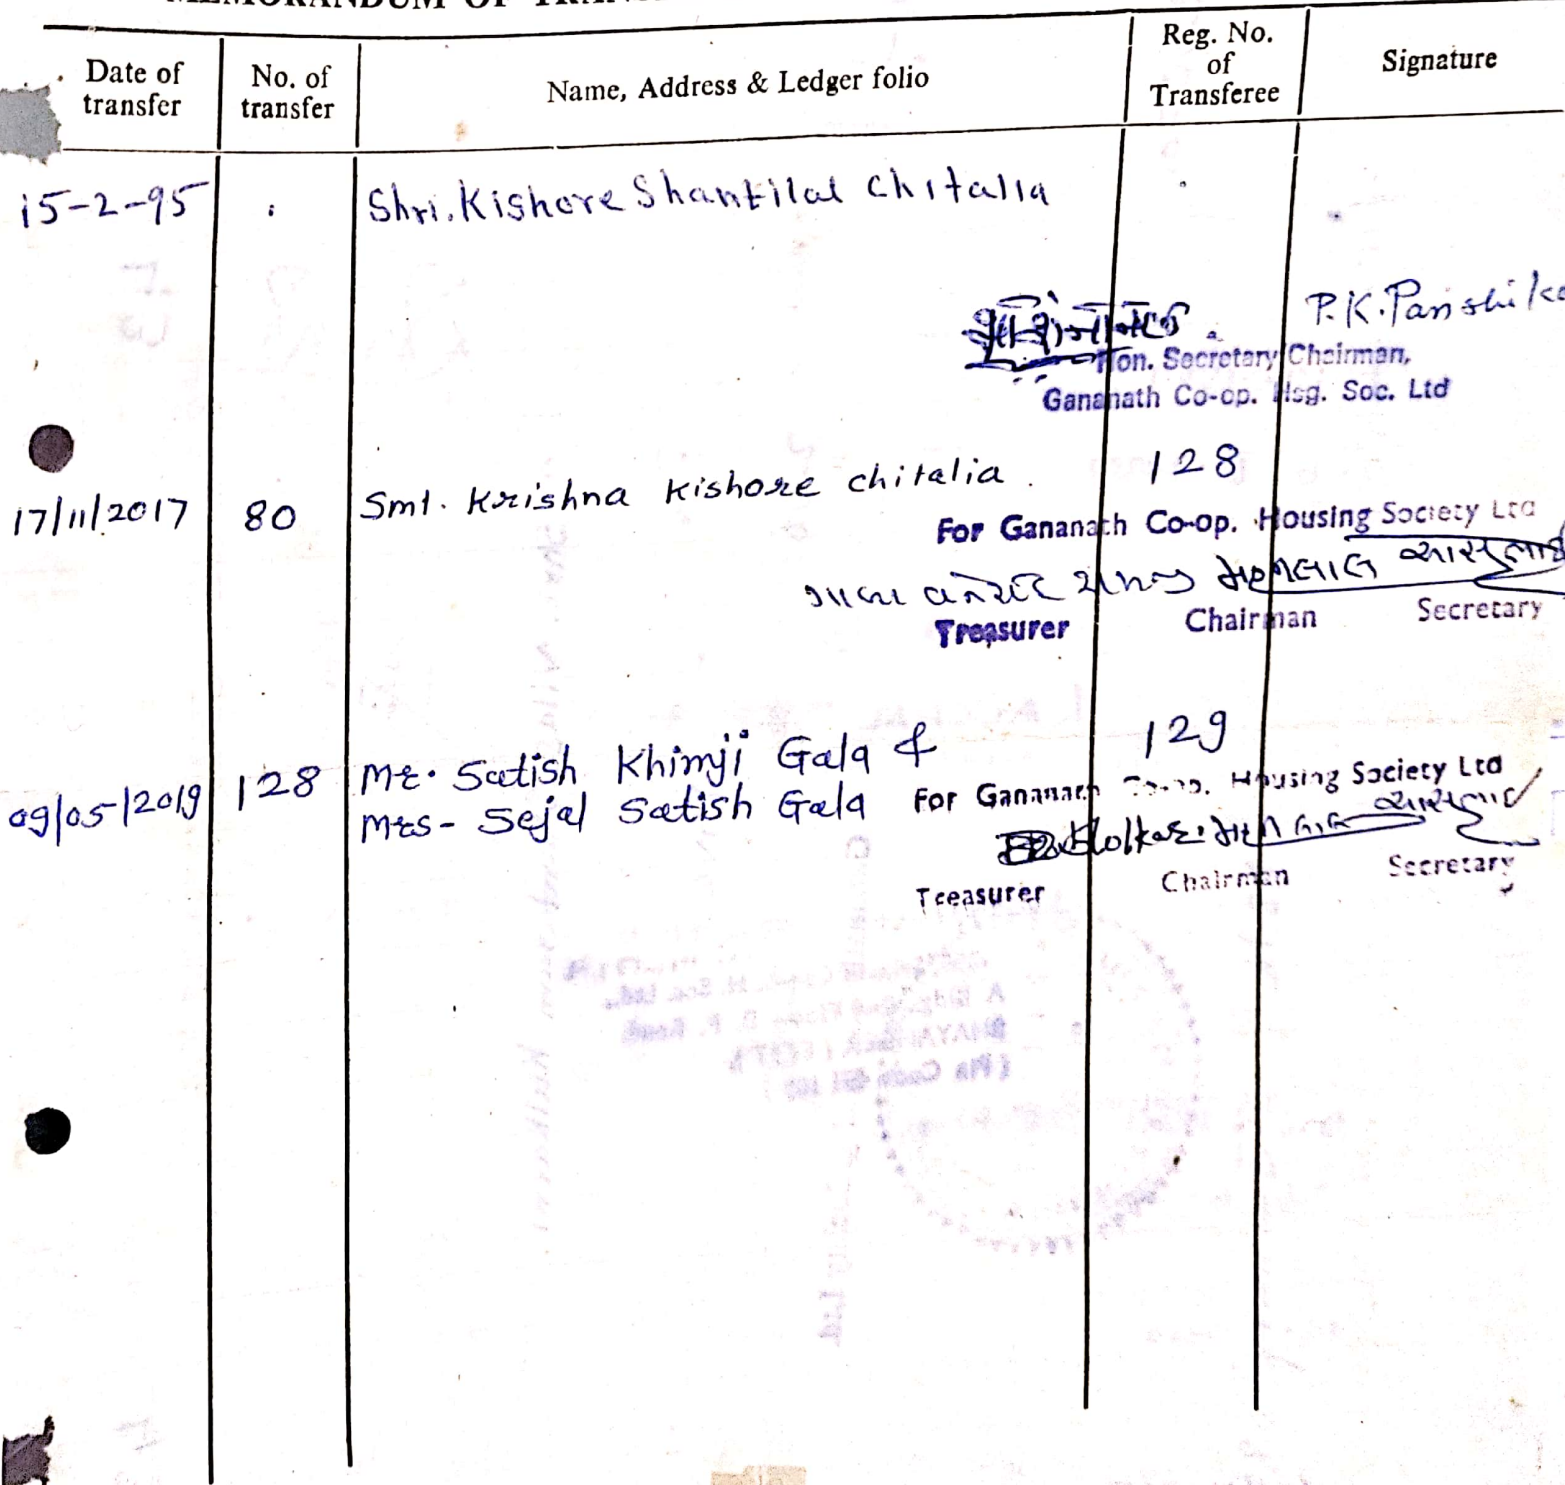 MEMORANDUM OF
Date of transfer
No. of transfer
Name, Address & Ledger folio
Reg. No. of Transferee
Signature
15-2-95
Shri. Kishore Shantilal Chitalia
P.K. Panshika
Hon. Secretary/Chairman,
Gananath Co-op. Hsg. Soc. Ltd
17/11/2017 80 Smt. Krishna Kishore chitalia. 128
For Gananath Co-op. Housing Society Ltd
Treasurer Chairman Secretary
09/05/2019 128 Mr. Satish Khimji Gala & 129
Mrs- Sejal Satish Gala
For Gananath Co-op. Housing Society Ltd
Treasurer Chairman Secretary